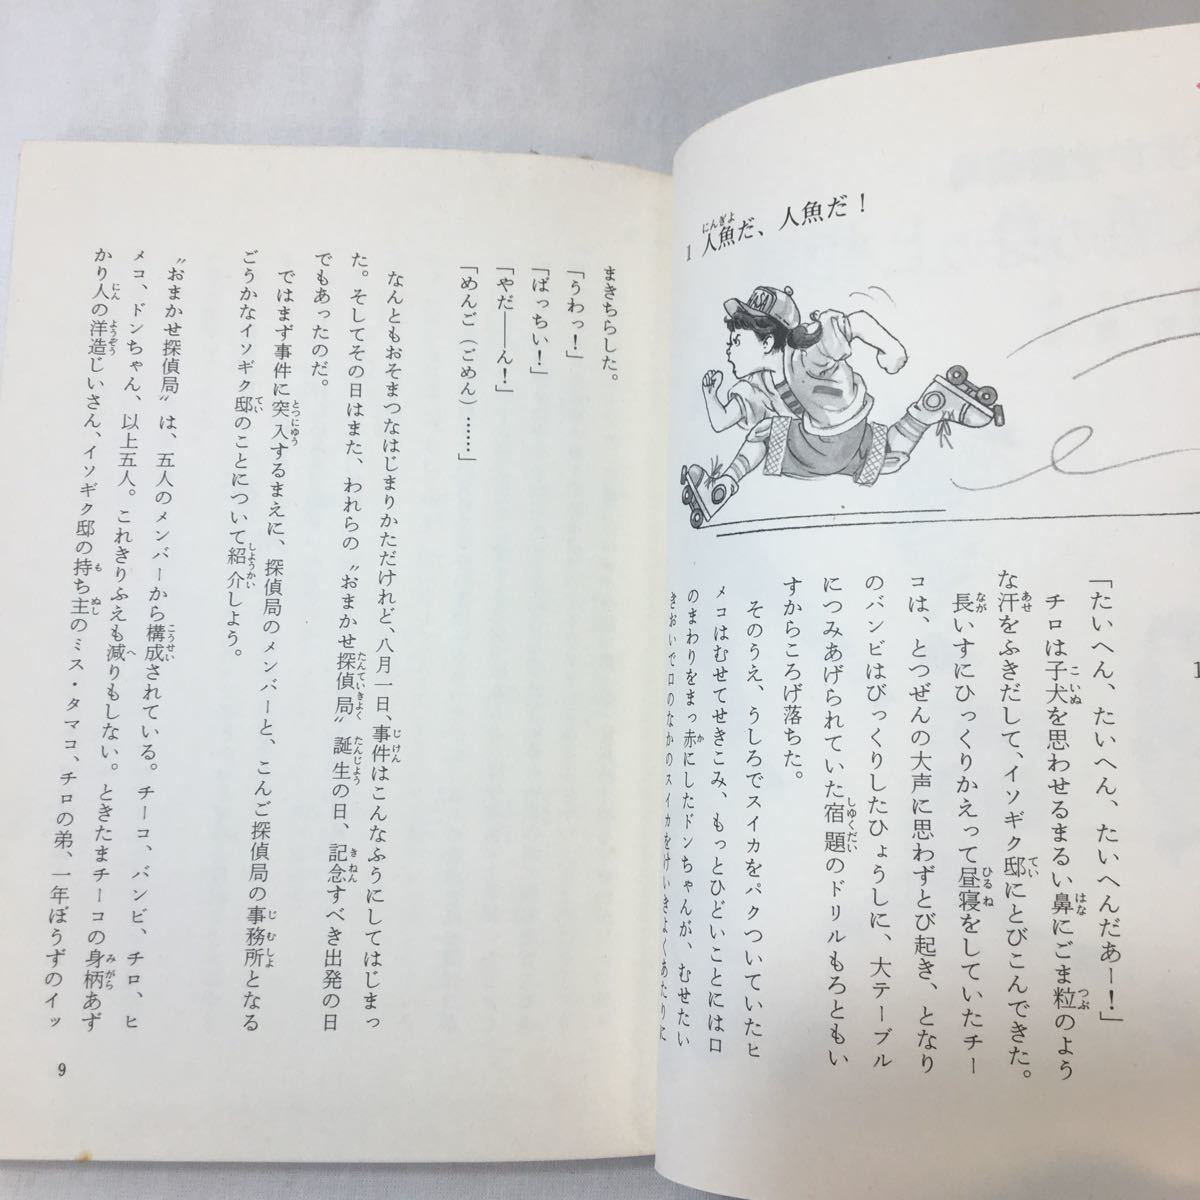 1 人魚だ、人魚だ！
にんぎよ
「たいへん、たいへん、たいへんだあー！」
チロは子犬を思わせるまるい鼻にごま粒のよう
こいぬ はな つぶ
な汗をふきだして、イソギク邸にとびこんできた。
あせ てい
長いすにひっくりかえって昼寝をしていたチー
なが ひるね
コは、とつぜんの大声に思わずとび起き、となり
のバンビはびっくりしたひょうしに、大テーブル
につみあげられていた宿題のドリルもろともい
しゆくだい
すからころげ落ちた。
そのうえ、うしろでスイカをパクついていたヒ
メコはむせてせきこみ、もっとひどいことには口
のまわりをまっ赤にしたドンちゃんが、むせたい
か
きおいで口のなかのスイカをけいきよくあたりに
まきちらした。
「うわっ！」
「ばっちい！」
「やだ——ん！」
「めんご（ごめん）……」
なんともおそまつなはじまりかただけれど、八月一日、事件はこんなふうにしてはじまっ
じけん
た。そしてその日はまた、われらの〝おまかせ探偵局〟誕生の日、記念すべき出発の日
たんていきよく たんじよう きねん
でもあったのだ。
ではまず事件に突入するまえに、探偵局のメンバーと、こんご探偵局の事務所となる
とつにゆう じむしよ
ごうかなイソギク邸のことについて紹介しよう。
てい しようかい
〝おまかせ探偵局〟は、五人のメンバーから構成されている。チーコ、バンビ、チロ、ヒ
こうせい
メコ、ドンちゃん、以上五人。これきりふえも減りもしない。ときたまチーコの身柄あず
へ みがら
かり人の洋造じいさん、イソギク邸の持ち主のミス・タマコ、チロの弟、一年ぼうずのイッ
にん ようぞう も ぬし
9